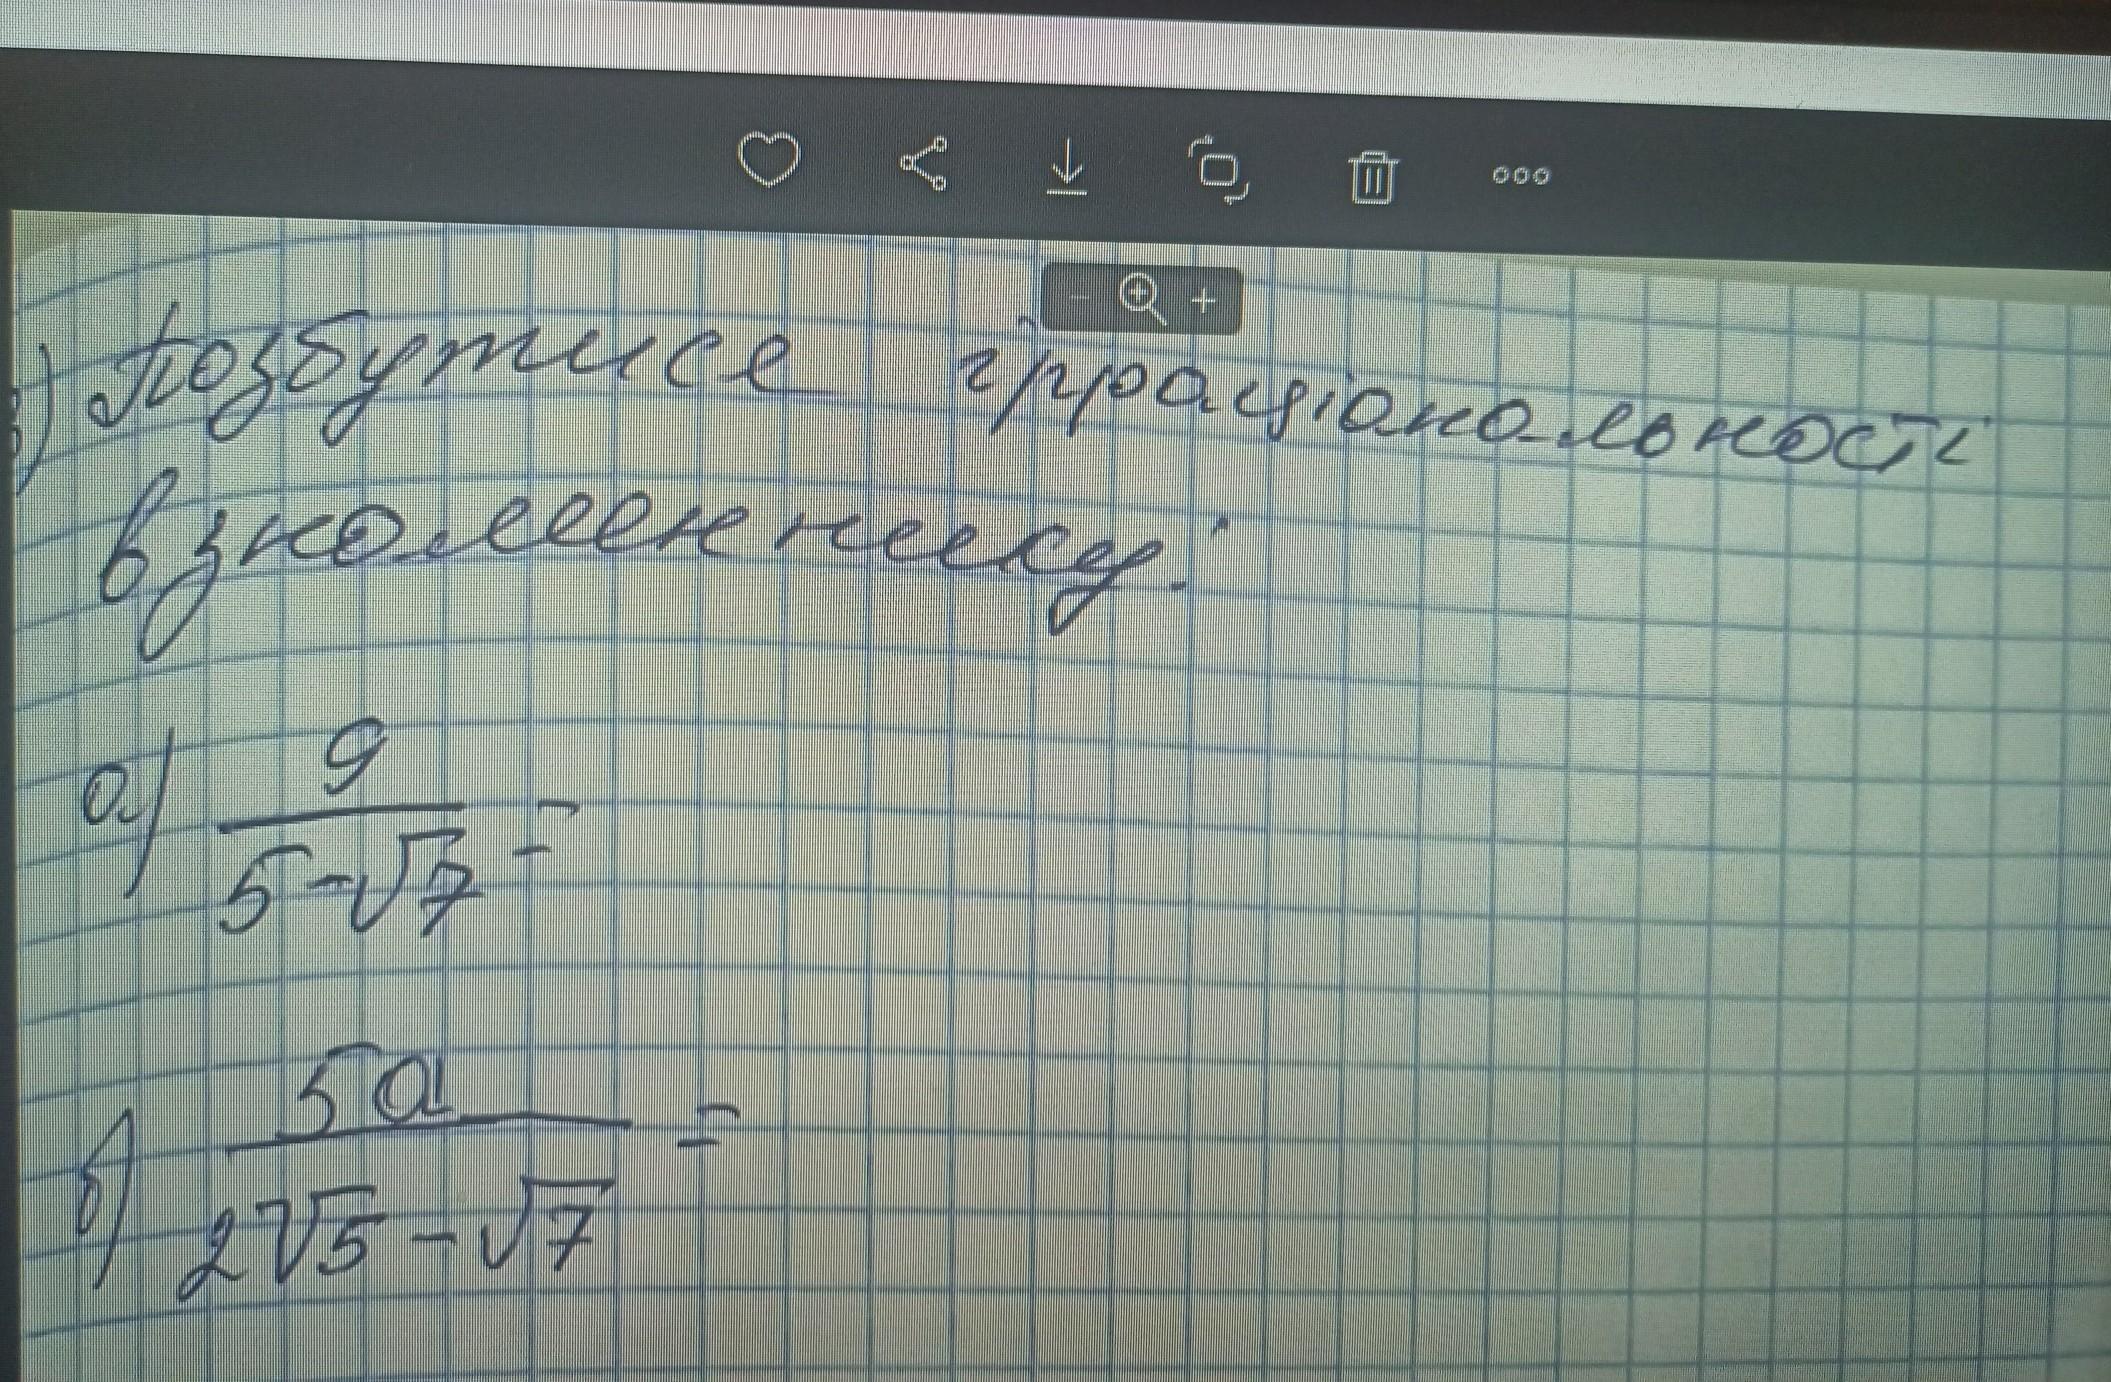 3) Позбутися ірраціональності
в знаменнику:
а) 9
5-√7 =
б) 5а =
2√5 - √7